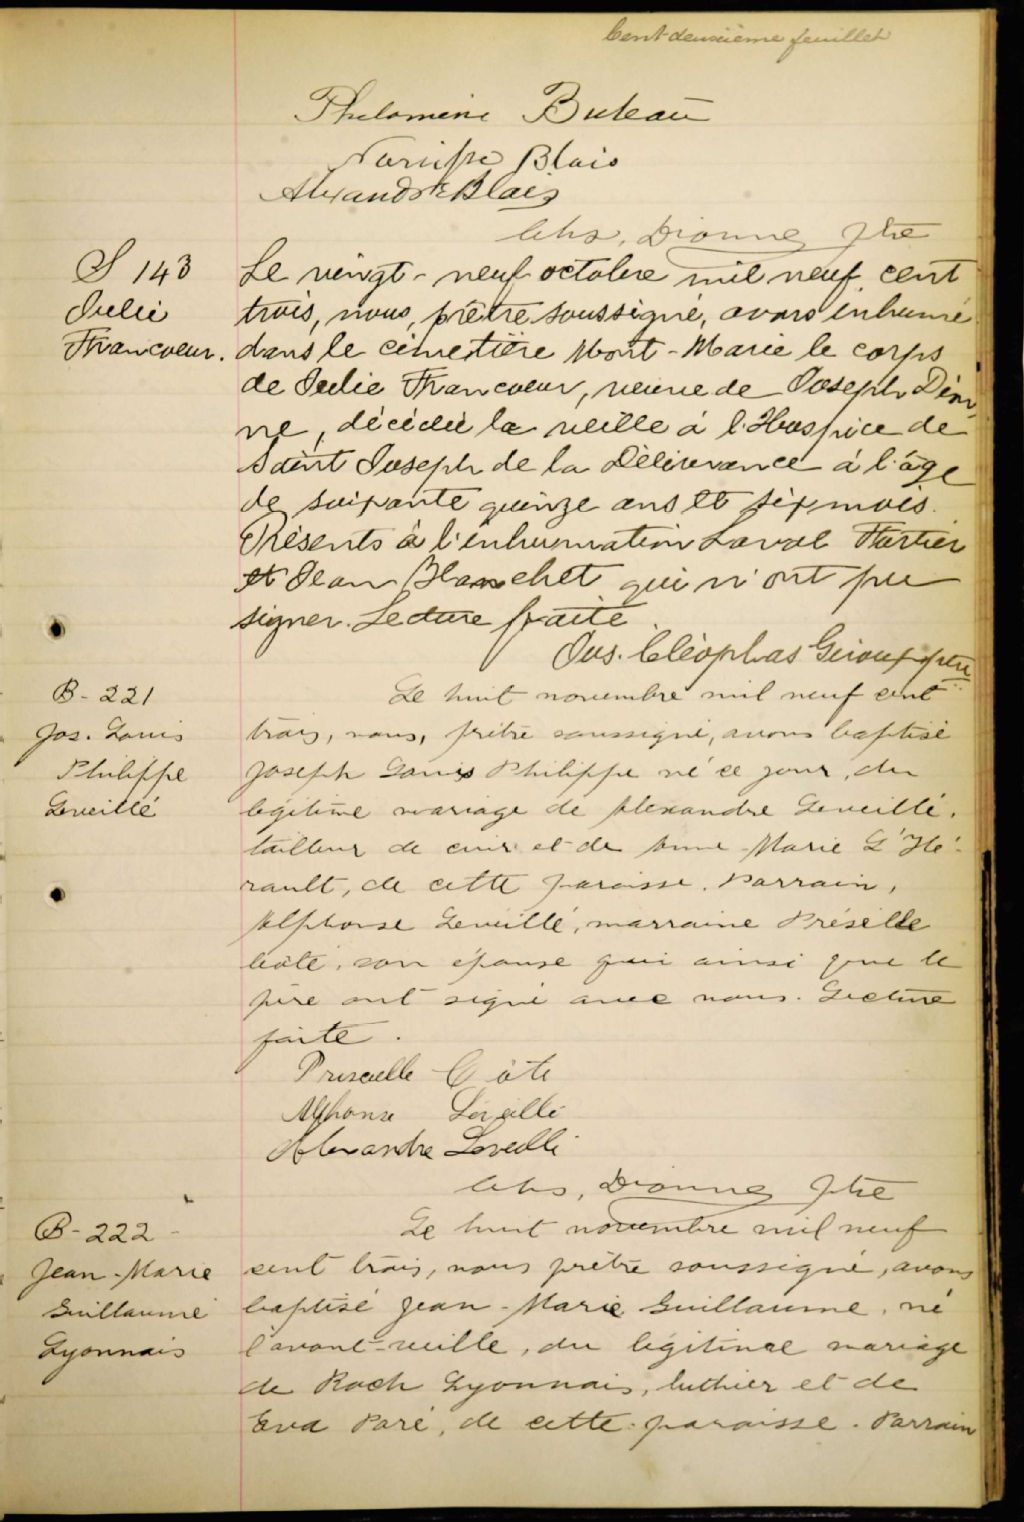 Cent-deuxième feuillet
Philomène Buteau
Narcisse Blais
Alexandre Blais
Chs. Dionne Ptre
S 143
Julie
Francoeur.
Le vingt-neuf octobre mil neuf cent
trois, nous, prêtre soussigné, avons inhumé
dans le cimetière Mont-Marie le corps
de Julie Francoeur, veuve de Joseph Dion
ne, décédée la veille à l'Hospice de
Saint Joseph de la Délivrance à l'âge
de soixante quinze ans et six mois.
Présents à l'inhumation Laval Fortier
et Jean Blanchet qui n'ont pu
signer. Lecture faite.
Jos. Cléophas Giroux ptre
B-221
Jos. Louis
Philippe
Leveillé
Le huit novembre mil neuf cent
trois, nous, prêtre soussigné, avons baptisé
Joseph Louis Philippe né ce jour, du
légitime mariage de Alexandre Leveillé,
tailleur de cuir et de Anne-Marie L'Hé-
rault, de cette paroisse. Parrain,
Alphonse Leveillé, marraine Préscille
Côté, son épouse qui ainsi que le
père ont signé avec nous. Lecture
faite.
Priscille Côté
Alphonse Léveillé
Alexandre Leveillé
Chs. Dionne Ptre
B-222-
Jean-Marie
Guillaume
Lyonnais
Le huit novembre mil neuf
cent trois, nous prêtre soussigné, avons
baptisé Jean-Marie Guillaume, né
l'avant-veille, du légitime mariage
de Roch Lyonnais, luthier et de
Eva Paré, de cette paroisse. Parrain